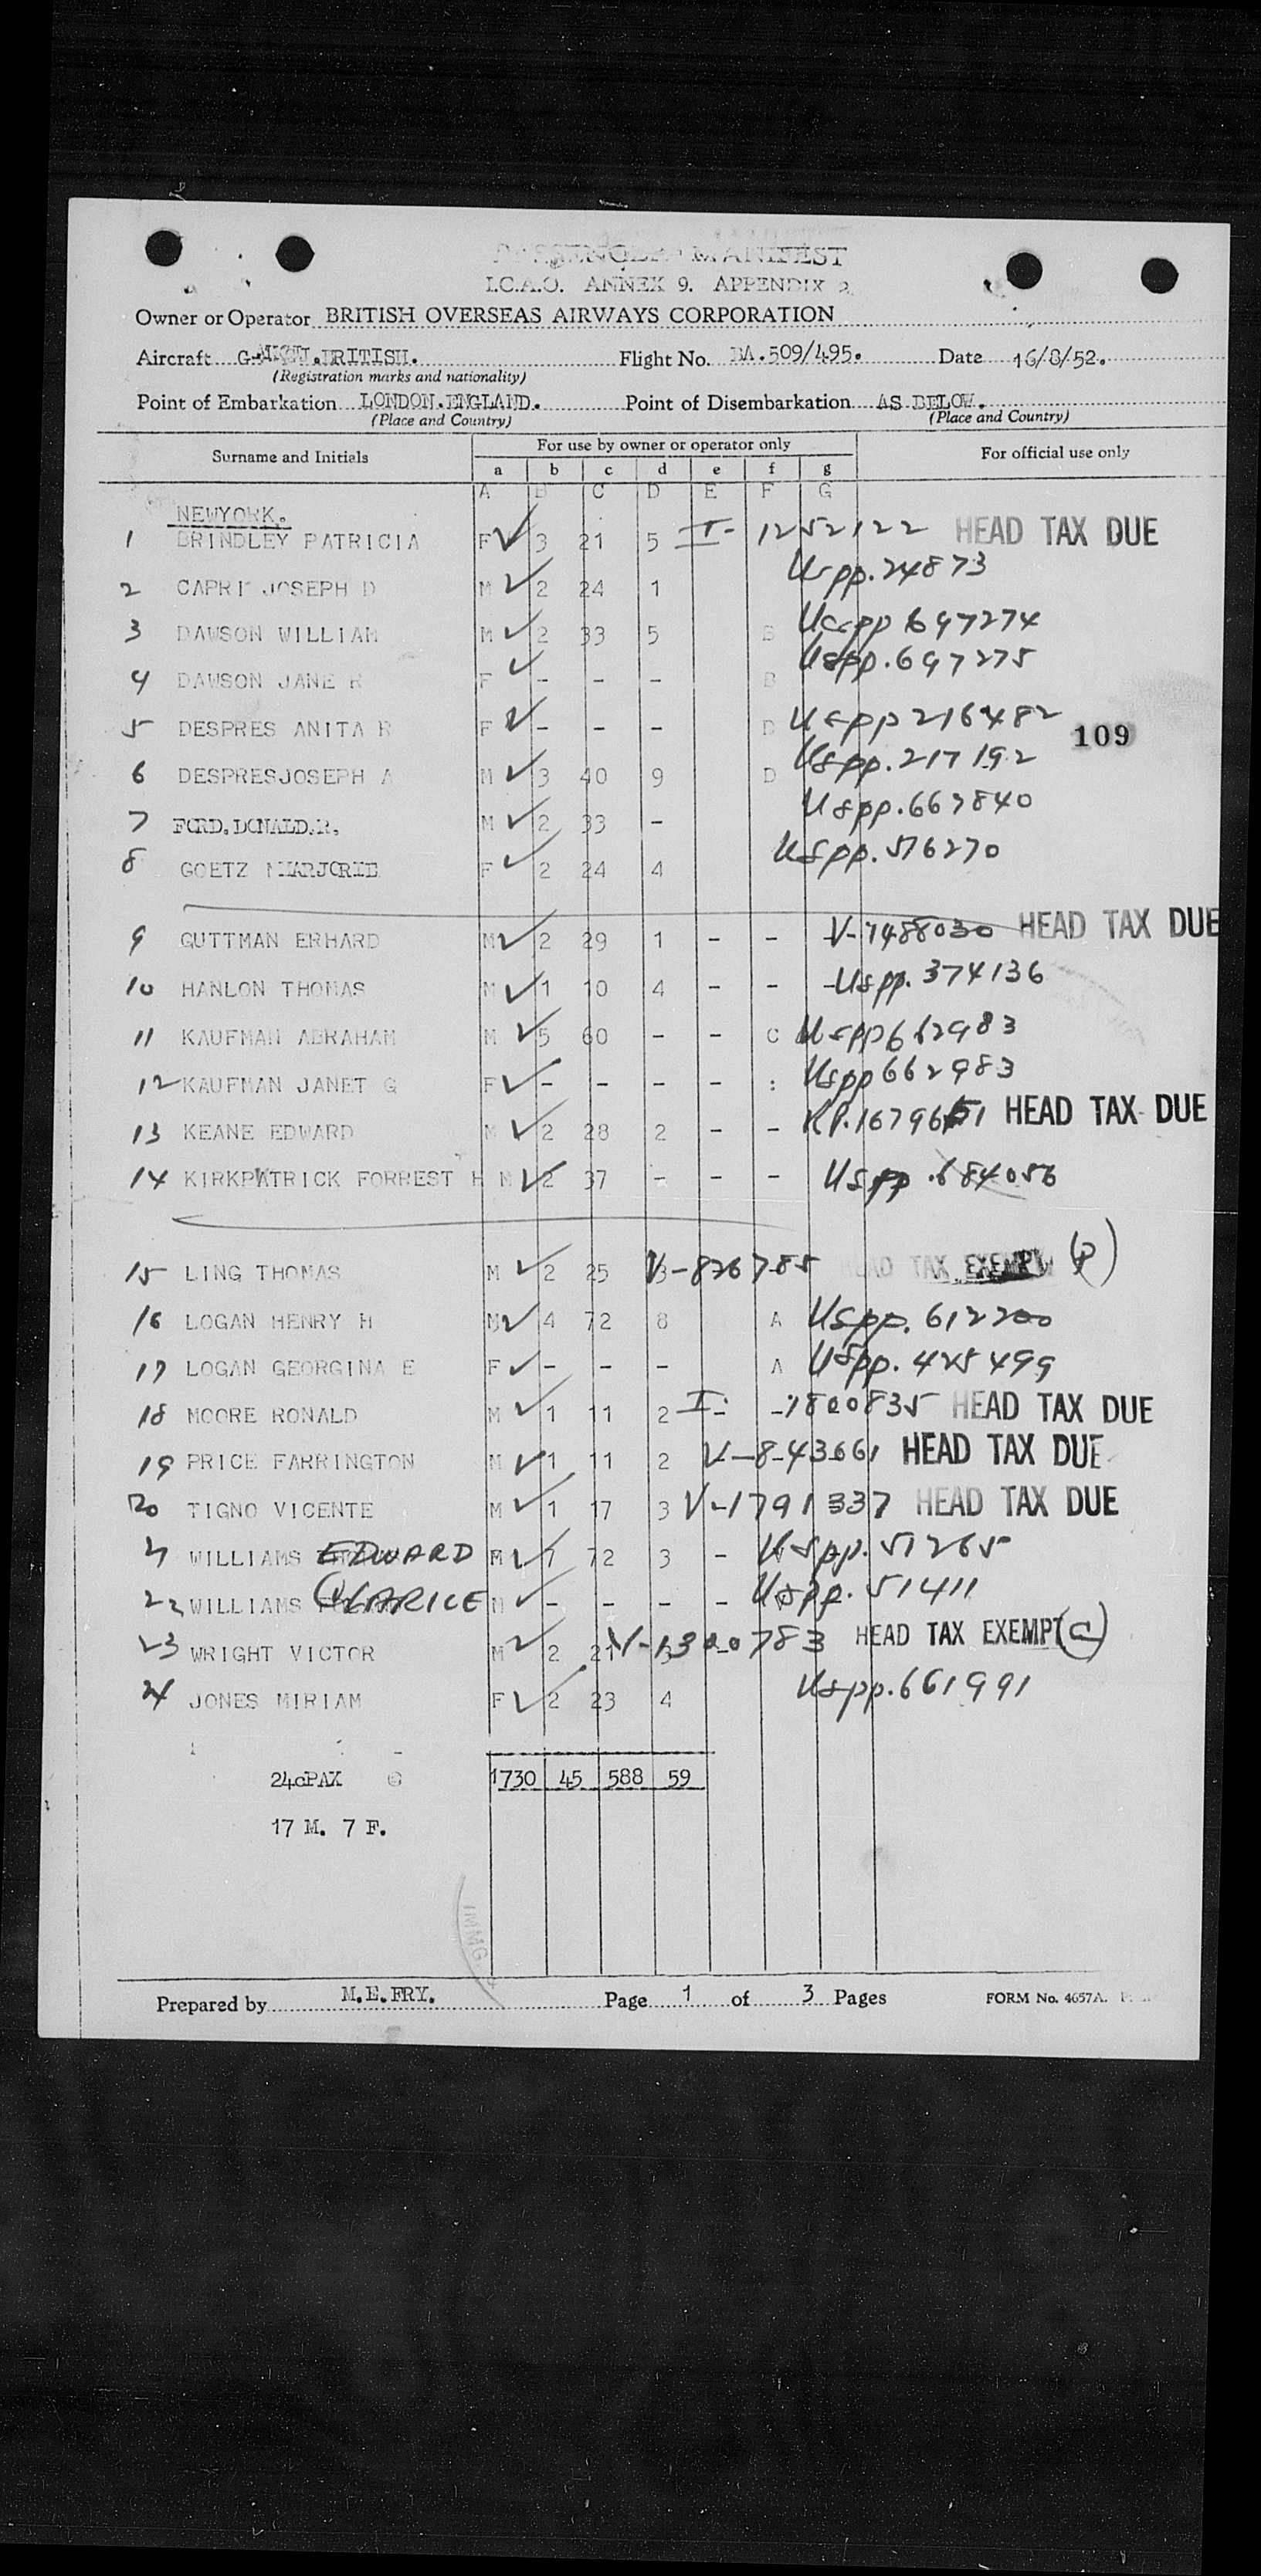 PASSENGER MANIFEST
I.C.A.O. ANNEX 9. APPENDIX 2.
Owner or Operator BRITISH OVERSEAS AIRWAYS CORPORATION
Aircraft BRITISH. Flight No. BA.509/495. Date 16/8/52.
(Registration marks and nationality)
Point of Embarkation LONDON.ENGLAND. Point of Disembarkation AS BELOW.
(Place and Country) (Place and Country)
Surname and Initials For use by owner or operator only For official use only
a b c d e f g
A B C D E F G
NEWYORK.
1 BRINDLEY PATRICIA F 3 21 5 I- 1252122 HEAD TAX DUE
2 CAPRI JOSEPH D M 2 24 1 Uspp.24873
3 DAWSON WILLIAM M 2 33 5 B Uspp 697274
4 DAWSON JANE R F - - - B Uspp.697275
5 DESPRES ANITA R F - - - D Uspp 216482
109
6 DESPRESJOSEPH A M 3 40 9 D Uspp.217192
7 FORD.DONALD.R. M 2 33 - Uspp.667840
8 GOETZ MARJORIE F 2 24 4 Uspp.576270
9 GUTTMAN ERHARD M 2 29 1 - - V-7488030 HEAD TAX DUE
10 HANLON THOMAS M 1 10 4 - - -Uspp.374136
11 KAUFMAN ABRAHAM M 5 60 - - C Uspp662983
12 KAUFMAN JANET G F - - - - : Uspp662983
13 KEANE EDWARD M 2 28 2 - - HEAD TAX DUE
14 KIRKPATRICK FORREST H M 2 37 - - - Uspp.684056
15 LING THOMAS M 2 25 3 V-826785 HEAD TAX EXEMPT
16 LOGAN HENRY H M 4 72 8 A Uspp.612200
17 LOGAN GEORGINA E F - - - A Uspp.425499
18 MOORE RONALD M 1 11 2 I- -1800835 HEAD TAX DUE
19 PRICE FARRINGTON M 1 11 2 V-843661 HEAD TAX DUE
20 TIGNO VICENTE M 1 17 3 V-1791337 HEAD TAX DUE
21 WILLIAMS EDWARD M 7 72 3 - Uspp.51265
22 WILLIAMS CLARICE M - - - - Uspp.51411
23 WRIGHT VICTOR M 2 21 3 V-1300783 HEAD TAX EXEMPT(a)
24 JONES MIRIAM F 2 23 4 Uspp.661991
24 PAX 1730 45 588 59
17 M. 7 F.
IMMIG
Prepared by M.E.FRY. Page 1 of 3 Pages FORM No. 4657A.